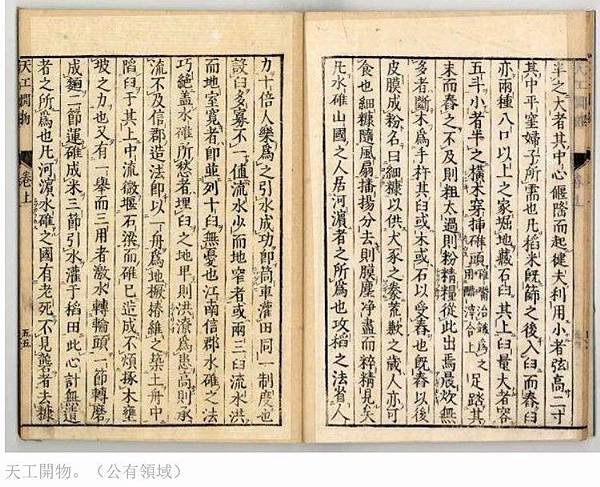 半之大者其中心偃隆而起健夫利用小者弦高二寸
其中平窪婦子所需也凡稻米既篩之後入臼而舂臼
亦兩種八口以上之家掘地藏石臼其上臼量大者容
五斗小者半之橫木穿插碓頭碓嘴冶鐵為之用醋滓合上足踏其
末而舂之不及則粗太過則粉精糧從此出焉晨炊無
多者斷木為手杵其臼或木或石以受舂也既舂以後
皮膜成粉名曰細糠以供犬豕之豢荒歉之歲人亦可
食也細糠隨風扇播揚分去則膜塵淨盡而粹精見矣
凡水碓山國之人居河濱者之所為也攻稻之法省人
力十倍人樂為之引水成功即筒車灌田同一制度也
設臼多寡不一值流水少而地窄者或兩三臼流水洪
而地室寬者即並列十臼無憂也江南信郡水碓之法
巧絕蓋水碓所愁者埋臼之地卑則洪潦為患高則承
流不及信郡造法即以一舟為地橛樁維之築土舟中
陷臼于其上中流微堰石梁而碓已造成不煩椓木壅
坡之力也又有一舉而三用者激水轉輪頭一節轉磨
成麵二節運碓成米三節引水灌于稻田此心計無遺
者之所為也凡河濱水碓之國有老死不見礱者去糠
天工開物
卷上
五五
天工開物。（公有領域）